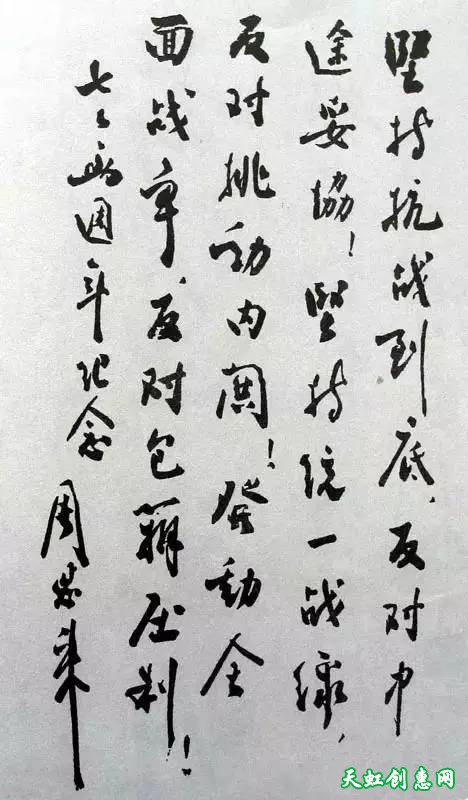 堅持抗战到底，反对中
途妥協！堅持统一战線，
反对挑动内鬨！發動全
面战争，反对包辦压制！
七七两週年纪念 周恩来
天虹创惠网